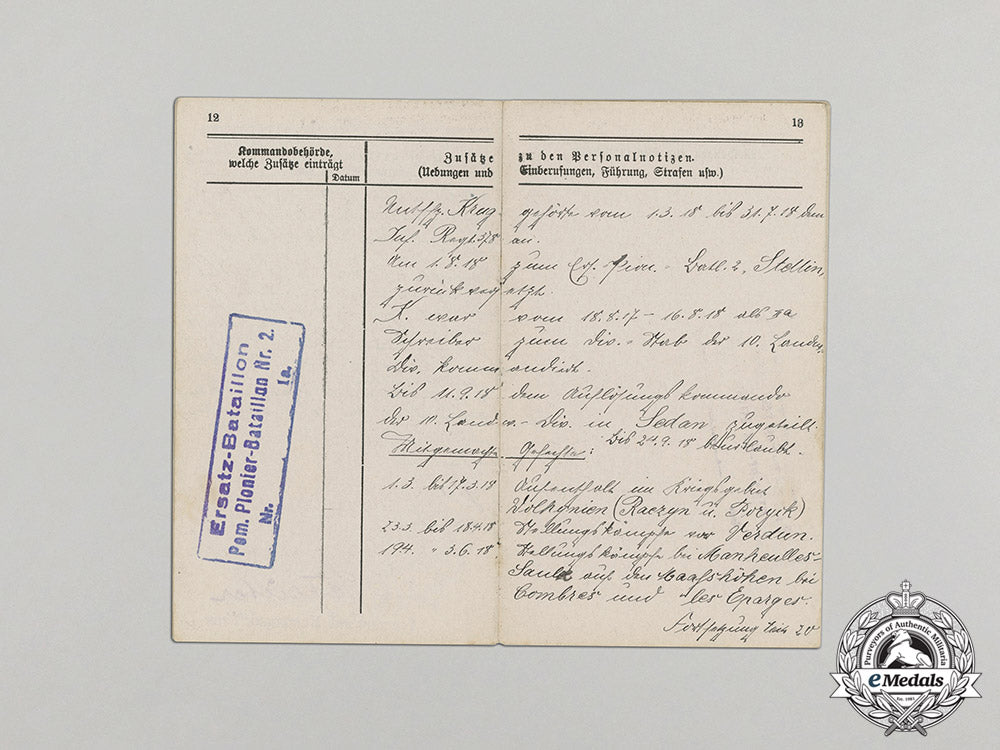 12
13
Kommandobehörde,
welche Zusätze einträgt
Datum
Zusätze zu den Personalnotizen.
(Uebungen und Einberufungen, Führung, Strafen usw.)
Krug gehörte vom 1.3.18 bis 31.7.18 dem
Inf. Regt. 378 an.
Am 1.8.18 zum Ers. Pion.-Batl. 2, Stettin,
zurückversetzt.
K. war vom 18.8.17 – 16.8.18 als
Schreiber zum Div.-Stab der 10. Landw.
Div. kommandiert.
Bis 11.9.18 dem Auflösungskommando
der 10. Landw.-Div. in Sedan zugeteilt.
Bis 24.9.18 beurlaubt.
Mitgemachte Gefechte:
1.3. bis 17.3.18 Aufenthalt im Kriegsgebiet
Wolhynien (Raczyn u. Poryck)
23.3. bis 18.4.18 Stellungskämpfe vor Verdun.
19.4. " 3.6.18 Stellungskämpfe bei Manheulles-
Saulx auf den Maashöhen bei
Combres und les Eparges.
Fortsetzung 20
Ersatz-Bataillon
Pom. Pionier-Bataillon Nr. 2.
Nr. Ia.
Purveyors of Authentic Militaria
eMedals
Est. 1981